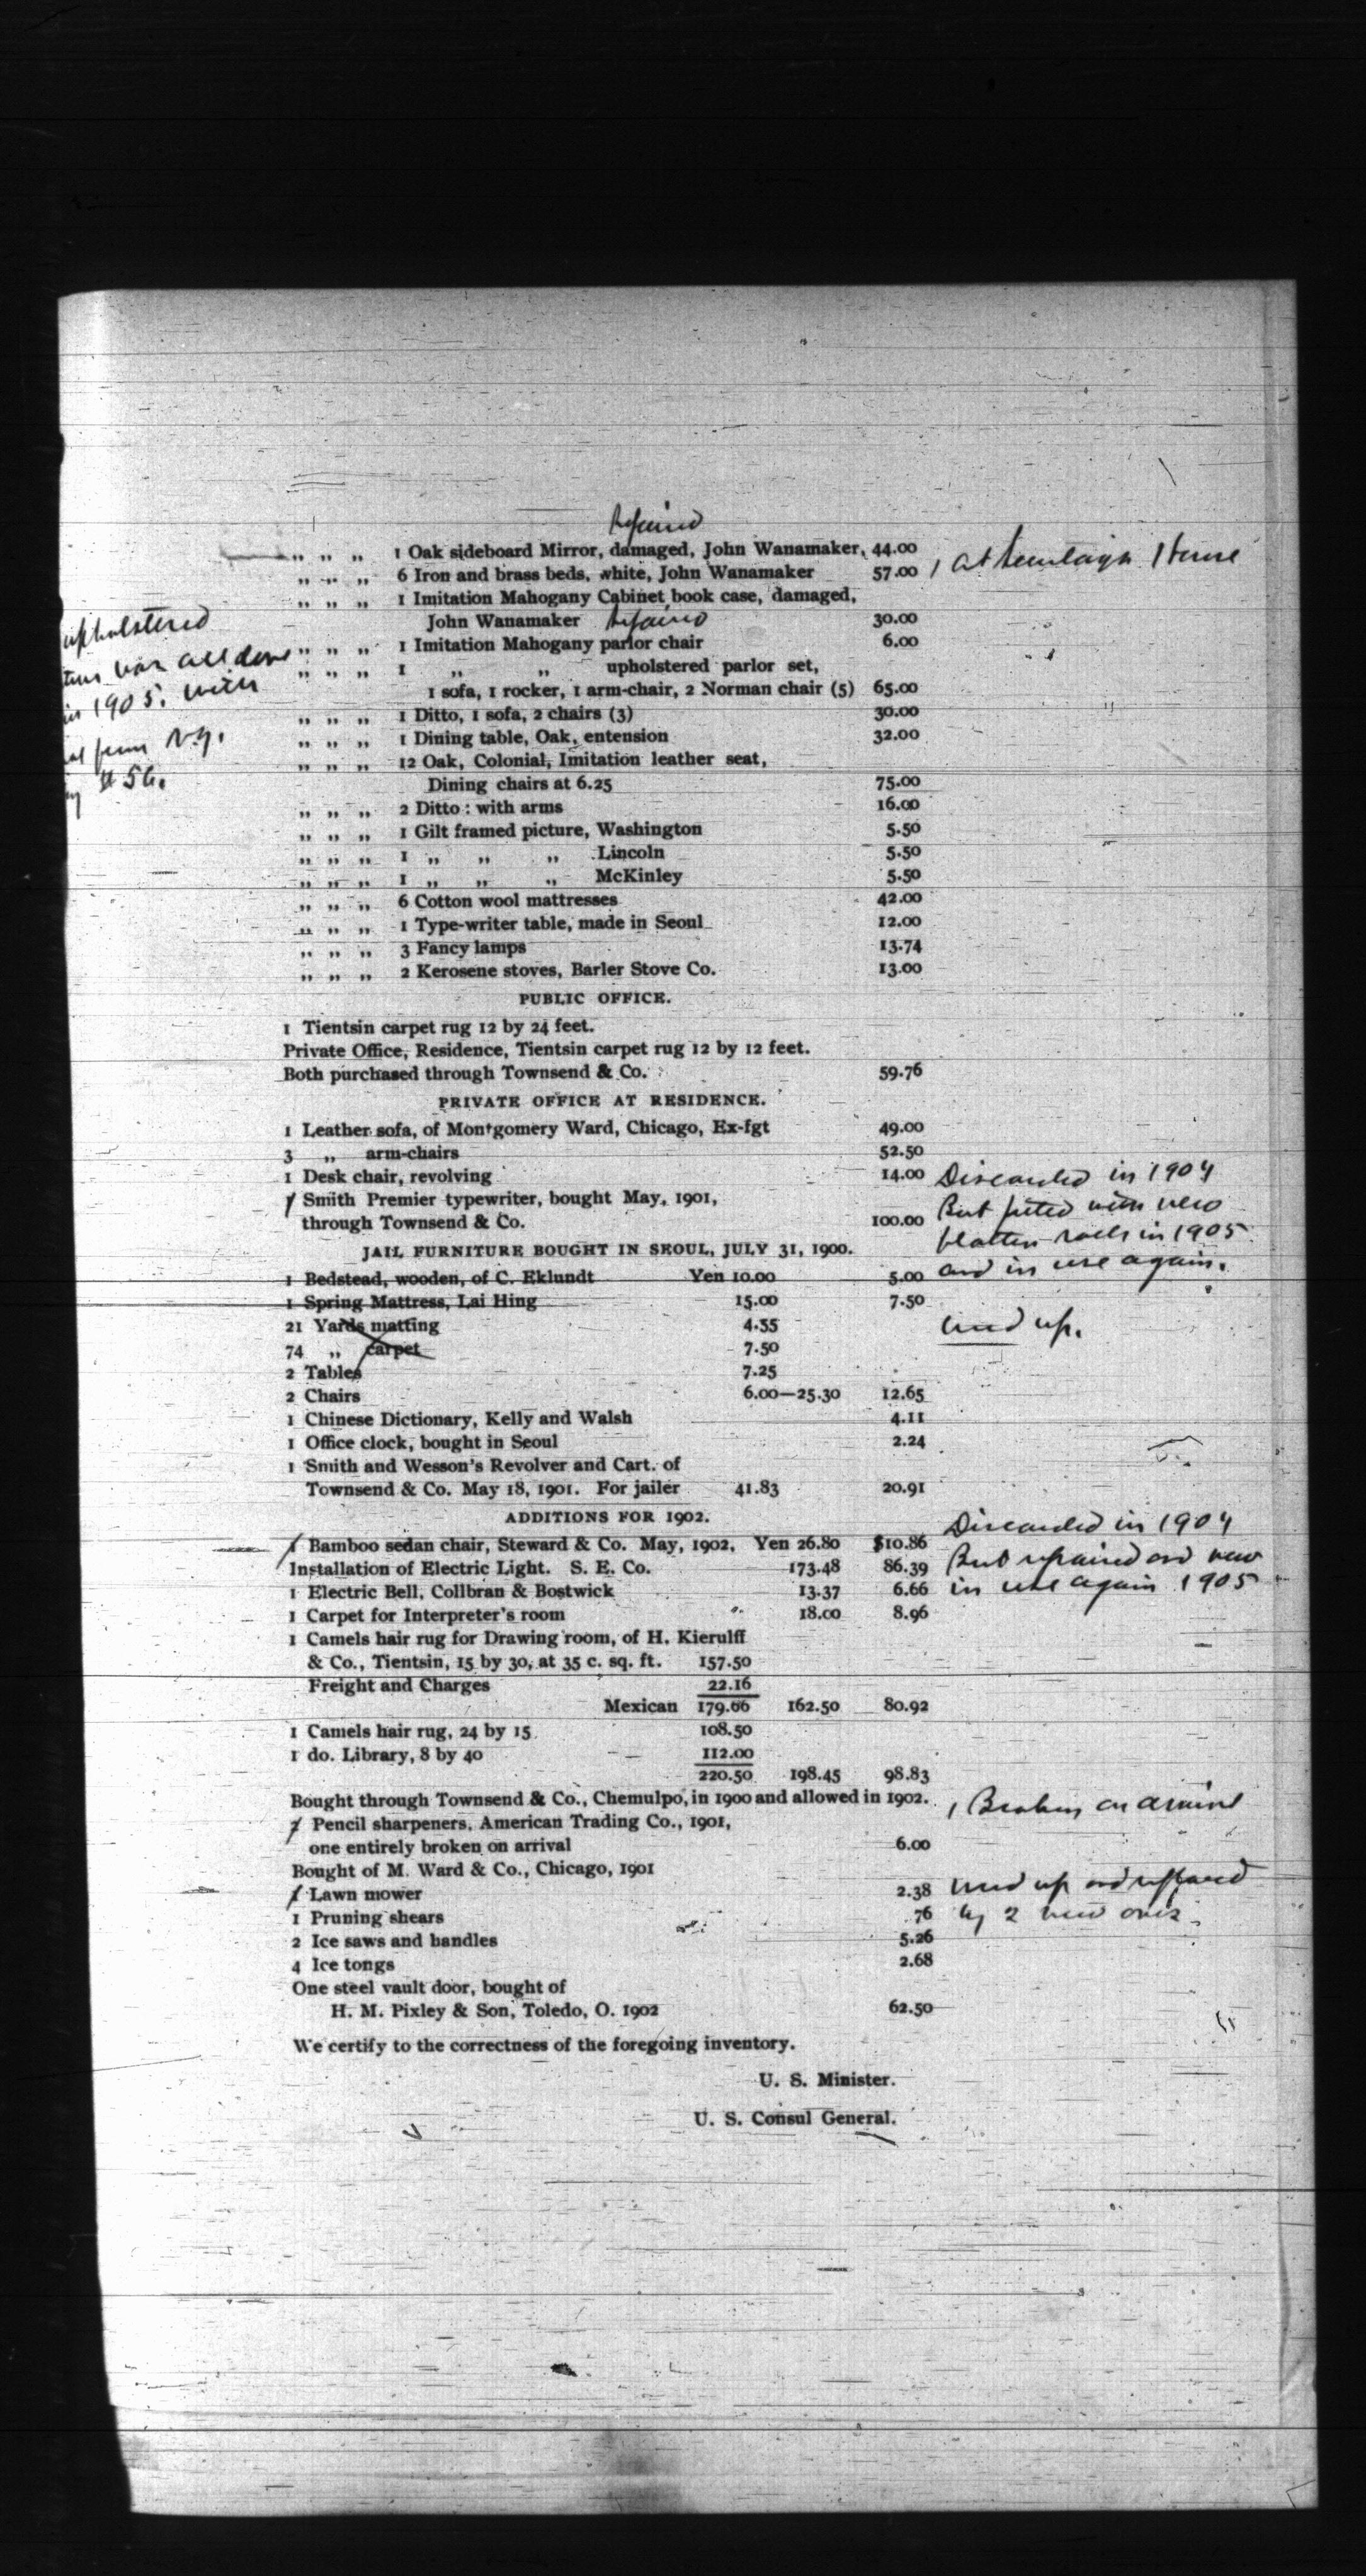 Repaired
„ „ „ 1 Oak sideboard Mirror, damaged, John Wanamaker, 44.00
„ „ „ 6 Iron and brass beds, white, John Wanamaker 57.00 1 at House
„ „ „ 1 Imitation Mahogany Cabinet book case, damaged,
John Wanamaker Repaired 30.00
upholstered
„ „ „ 1 Imitation Mahogany parlor chair 6.00
was all done
„ „ „ 1 „ „ upholstered parlor set,
1 sofa, 1 rocker, 1 arm-chair, 2 Norman chair (5) 65.00
in 1905. with
„ „ „ 1 Ditto, 1 sofa, 2 chairs (3) 30.00
„ „ „ 1 Dining table, Oak, entension 32.00
from N.Y.
„ „ „ 12 Oak, Colonial, Imitation leather seat,
$56.
Dining chairs at 6.25 75.00
„ „ „ 2 Ditto: with arms 16.00
„ „ „ 1 Gilt framed picture, Washington 5.50
„ „ „ 1 „ „ „ Lincoln 5.50
„ „ „ 1 „ „ „ McKinley 5.50
„ „ „ 6 Cotton wool mattresses 42.00
„ „ „ 1 Type-writer table, made in Seoul 12.00
„ „ „ 3 Fancy lamps 13.74
„ „ „ 2 Kerosene stoves, Barler Stove Co. 13.00
PUBLIC OFFICE.
1 Tientsin carpet rug 12 by 24 feet.
Private Office, Residence, Tientsin carpet rug 12 by 12 feet.
Both purchased through Townsend & Co. 59.76
PRIVATE OFFICE AT RESIDENCE.
1 Leather sofa, of Montgomery Ward, Chicago, Ex-fgt 49.00
3 „ arm-chairs 52.50
1 Desk chair, revolving 14.00 Discarded in 1904
1 Smith Premier typewriter, bought May, 1901, But fitted with new
through Townsend & Co. 100.00 platten rolls in 1905
JAIL FURNITURE BOUGHT IN SEOUL, JULY 31, 1900.
1 Bedstead, wooden, of C. Eklundt Yen 10.00 5.00 and in use again.
1 Spring Mattress, Lai Hing 15.00 7.50
21 Yards matting 4.55 used up.
74 „ carpet 7.50
2 Tables 7.25
2 Chairs 6.00—25.30 12.65
1 Chinese Dictionary, Kelly and Walsh 4.11
1 Office clock, bought in Seoul 2.24
1 Smith and Wesson's Revolver and Cart. of
Townsend & Co. May 18, 1901. For jailer 41.83 20.91
ADDITIONS FOR 1902.
Discarded in 1904
1 Bamboo sedan chair, Steward & Co. May, 1902, Yen 26.80 $10.86
Installation of Electric Light. S. E. Co. 173.48 86.39 But repaired and now
1 Electric Bell, Collbran & Bostwick 13.37 6.66 in use again 1905
1 Carpet for Interpreter's room 18.00 8.96
1 Camels hair rug for Drawing room, of H. Kierulff
& Co., Tientsin, 15 by 30, at 35 c. sq. ft. 157.50
Freight and Charges 22.16
Mexican 179.66 162.50 80.92
1 Camels hair rug, 24 by 15 108.50
1 do. Library, 8 by 40 112.00
220.50 198.45 98.83
Bought through Townsend & Co., Chemulpo, in 1900 and allowed in 1902.
1 Broken on arrival
Pencil sharpeners, American Trading Co., 1901,
one entirely broken on arrival 6.00
Bought of M. Ward & Co., Chicago, 1901
1 Lawn mower 2.38 used up and replaced
1 Pruning shears 76 by 2 new ones.
2 Ice saws and handles 5.26
4 Ice tongs 2.68
One steel vault door, bought of
H. M. Pixley & Son, Toledo, O. 1902 62.50
We certify to the correctness of the foregoing inventory.
U. S. Minister.
U. S. Consul General.